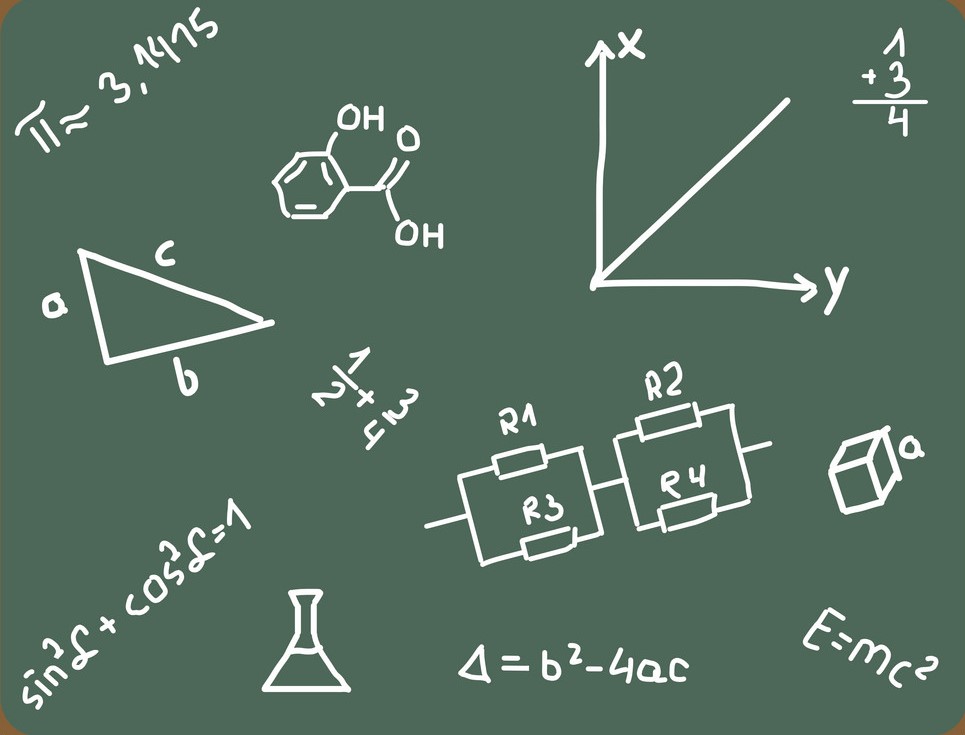 π≈3,1415
OH
O
OH
x
y
1
+3
4
c
a
b
1/2+3/4
R1
R3
R2
R4
a
sin²α+cos²α=1
Δ=b²-4ac
E=mc²